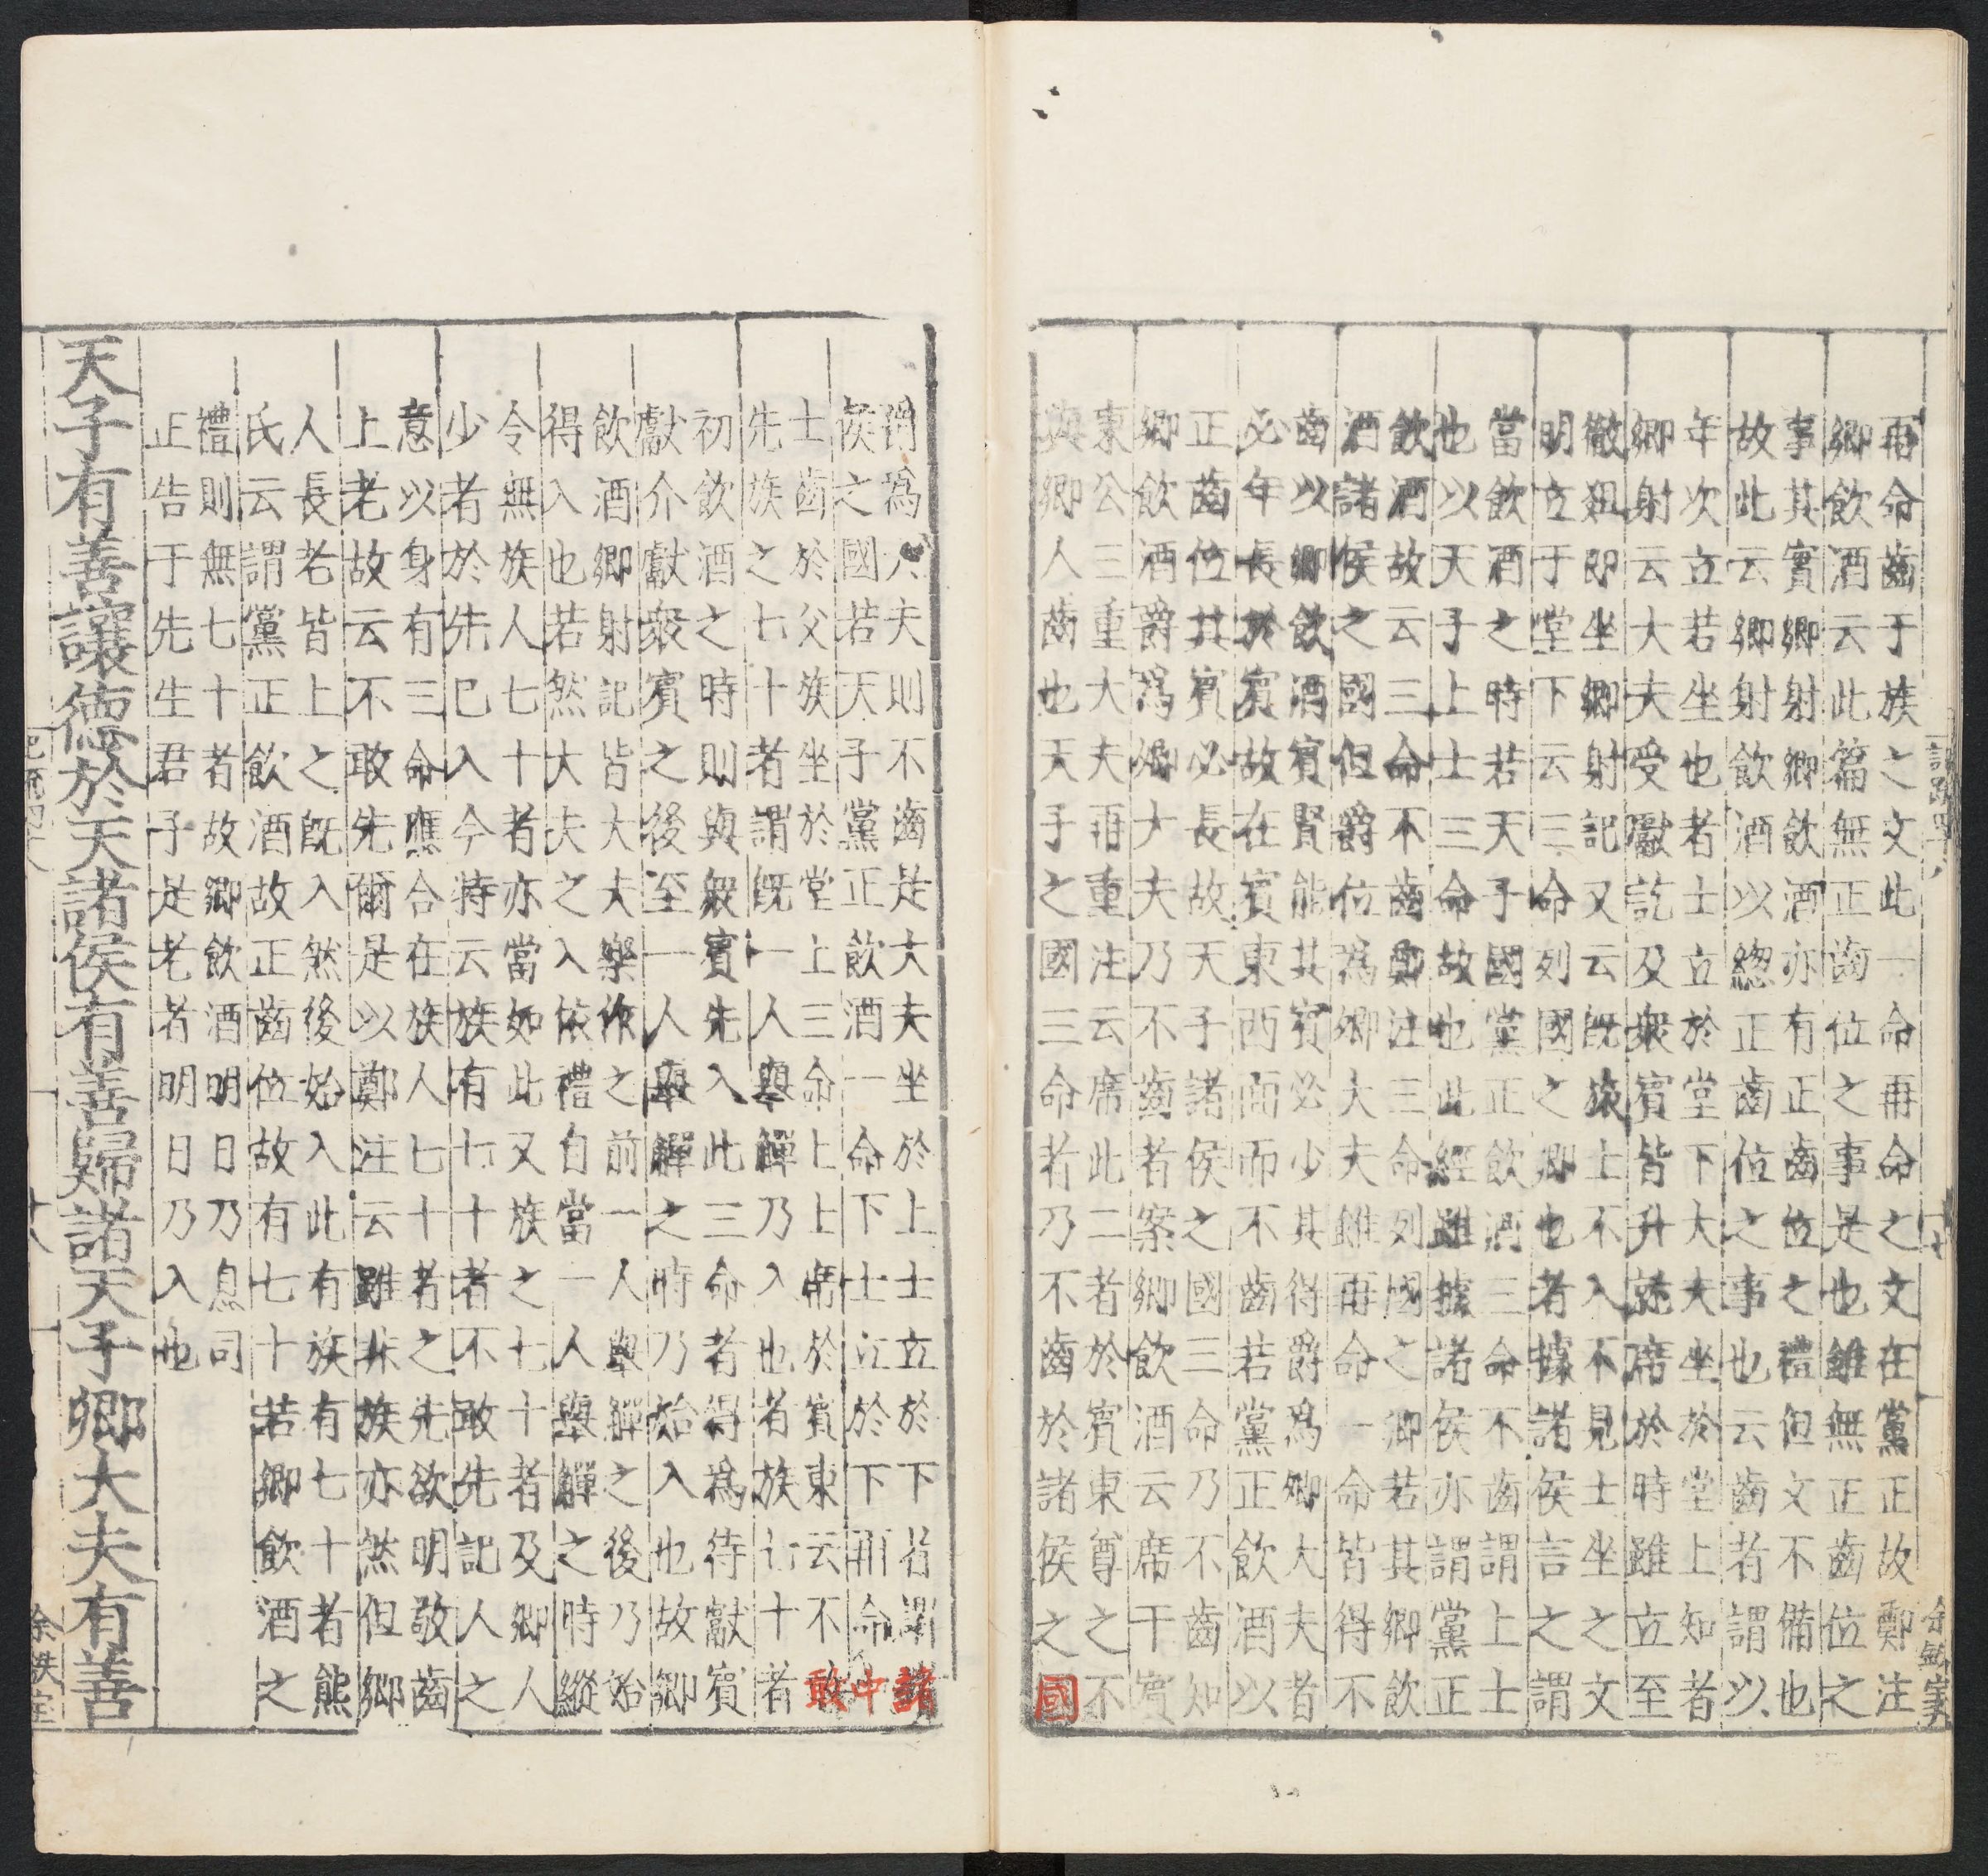 記疏四八
十七
再命齒于族之文此一命再命之文在黨正故鄭注
卿飲酒云此篇無正齒位之事是也雖無正齒位之
事其實卿射卿飲酒亦有正齒位之禮但文不備也
故此云卿射飲酒以總正齒位之事也云齒者謂以
年次立若坐也者士立於堂下大夫坐於堂上知者
卿射云大夫受獻訖及衆賓皆升就席於時雖立至
徹俎即坐卿射記又云既旅上不入不見士坐之文
明立于堂下云三命列國之卿也者據諸侯言之謂
當飲酒之時若天子國黨正飲酒三命不齒謂上士
也以天子上士三命故也此經雖據諸侯亦謂黨正
飲酒故云三命不齒鄭注三命列國之卿若其卿飲
酒諸侯之國但爵位為卿大夫雖再命一命皆得不
齒以卿飲酒賓賢能其賓必少其得爵爲卿大夫者
必年長於賓故在賓東西面而不齒若黨正飲酒以
正齒位其賓必長故天子諸侯之國三命乃不齒知
卿飲酒爵爲卿大夫乃不齒者案卿飲酒云席于賓
東公三重大夫再重注云席此二者於賓東尊之不
與卿人齒也天子之國三命者乃不齒於諸侯之國
爵爲大夫則不齒是大夫坐於上士立於下者謂諸
侯之國若天子黨正飲酒一命下士立於下再命中
士齒於父族坐於堂上三命上上席於賓東云不敢
先族之七十者謂既一人舉觶乃入也者族七十者
初飲酒之時則與衆賓先入此三命者得爲待獻賓
獻介獻衆賓之後至一人舉觶之時乃始入也故卿
飲酒卿射記皆大夫樂作之前一人舉觶之後乃始
得入也若然大夫之入依禮自當一人舉觶之時縱
令無族人七十者亦當如此又族之七十者及卿人
少者於先已入今特云族有七十者不敢先記人之
意以身有三命應合在族人七十者之先欲明敬齒
上老故云不敢先爾是以鄭注云雖非族亦然但鄉
人長老皆上之既入然後始入此有族有七十者熊
氏云謂黨正飲酒故正齒位故有七十若卿飲酒之
禮則無七十者故卿飲酒明日乃息司
正告于先生君子是老者明日乃入也
天子有善讓德於天諸侯有善歸諸天子卿大夫有善